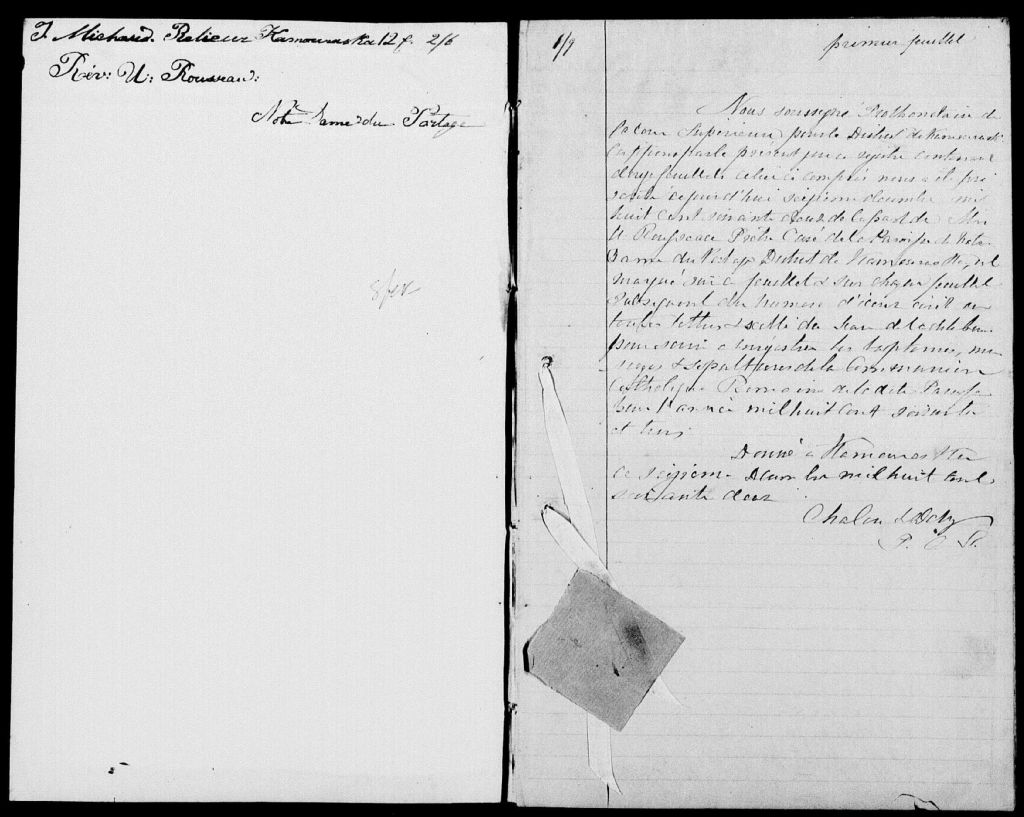 J. Michaud. Relieur Kamouraska 12 f. 2/6
Rév: U: Rousseau:
Notre Dame du Portage
1/9
premier feuillet
Nous soussigné Prothonotaire de
la Cour Superieure pour le District de Kamouraska
par le présent que ce registre contenant
feuillets celui ci compris nous a été pré
senté cejourd'hui seizieme decembre mil
huit cent soixante deux de la part de Mre
U Rousseau Prêtre Curé de la Paroisse de Notre
Dame du Portage District de Kamouraska, est
marqué sur ce feuillet & sur chaque feuillet
subsequent du numero d'iceux écrit en
toutes lettres & scellé du sceau de la dite Cour
pour servir a enregistrer les baptemes, ma
riages & sepultures de la Communion
Catholique Romaine de la dite Paroisse
pour l'année mil huit cent soixante
et trois
Donné a Kamouraska
ce seizieme Decembre mil huit cent
soixante deux
P. C. S.